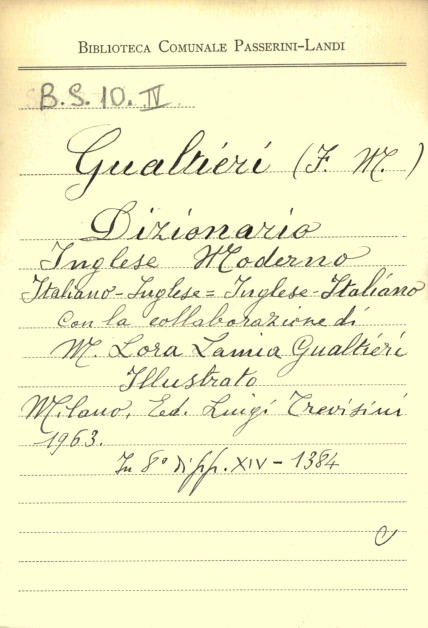 BIBLIOTECA COMUNALE PASSERINI-LANDI
B.S. 10. IV
Gualtieri (F. M.)
Dizionario
Inglese Moderno
Italiano-Inglese = Inglese-Italiano
con la collaborazione di
M. Lora Lamia Gualtieri
Illustrato
Milano, Ed. Luigi Trevisini
1963.
In 8° di pp. XIV - 1384